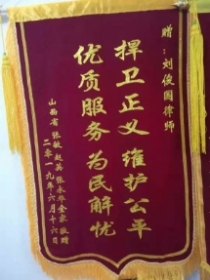 赠：刘俊国律师
捍卫正义 维护公平
优质服务 为民解忧
山西省张敏赵英张永华全家敬赠
二零一九年六月十六日